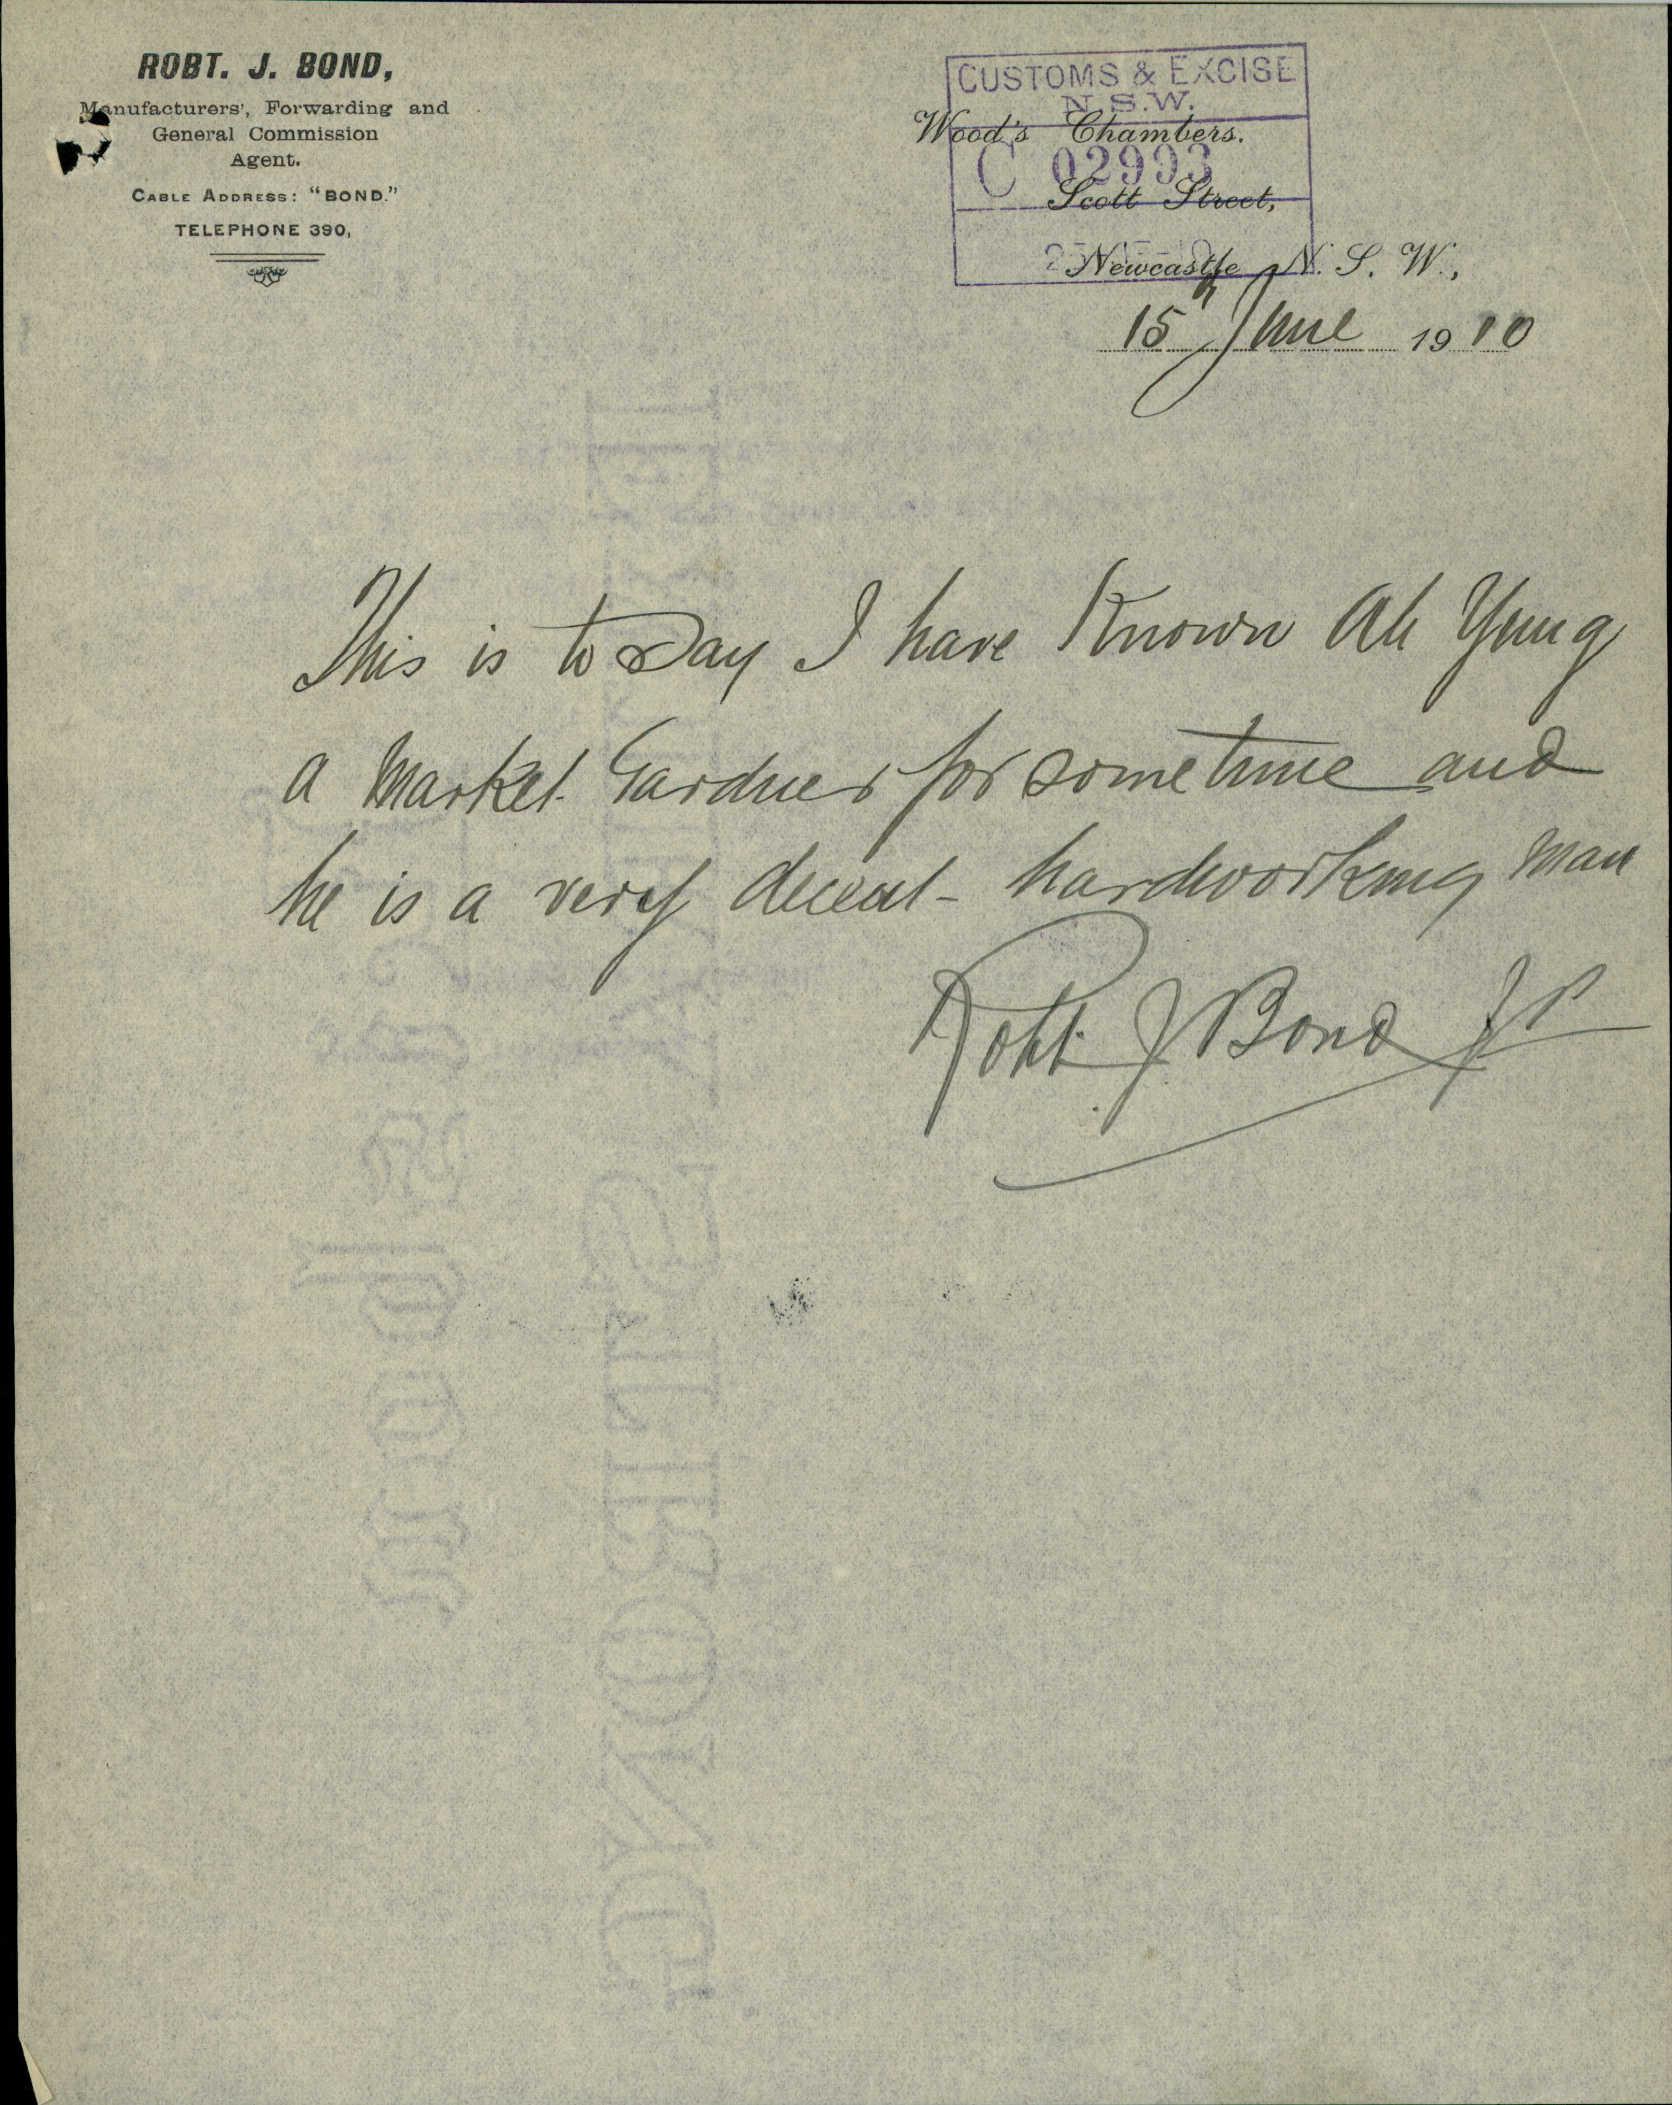 ROBT. J. BOND,
Manufacturers', Forwarding and
General Commission
Agent.
CABLE ADDRESS: "BOND."
TELEPHONE 390,
CUSTOMS & EXCISE
N.S.W.
Wood's Chambers.
C 02993
Scott Street,
Newcastle N. S. W.,
15th June 1910
This is to Say I have Known Ah Yung
a Market Gardner for sometime and
he is a very decent hardworking Man
Robt. J Bond JP